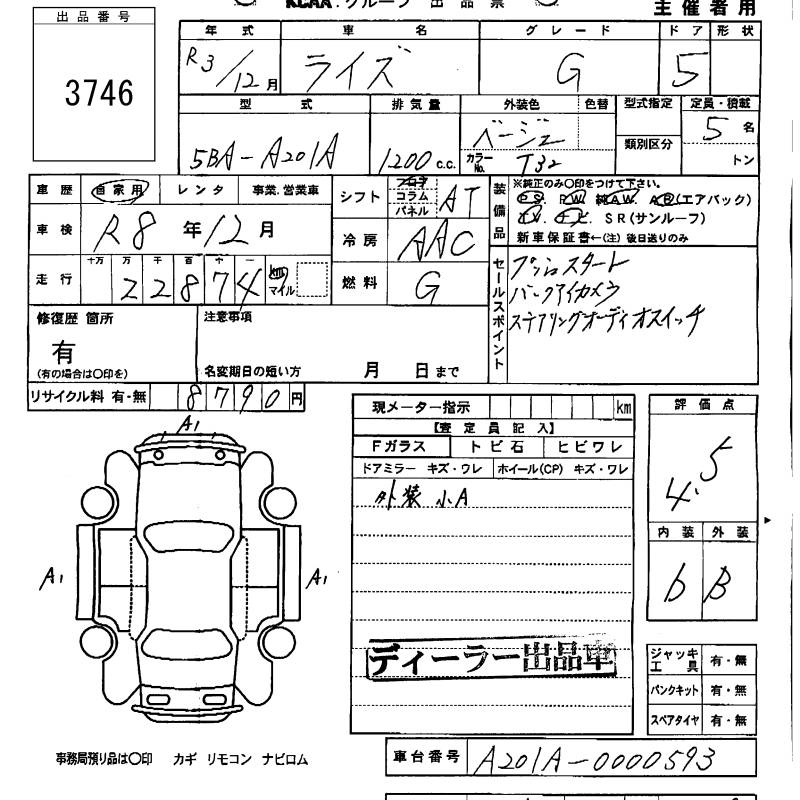 KCAA.グループ 出品票
主催者用
出品番号
3746
年式 車名 グレード ドア 形状
R3/12月 ライズ G 5
型式 排気量 外装色 色替 型式指定 定員・積載
5BA-A201A 1200c.c. ベージュ 5名
カラーNo. T32 類別区分 トン
車歴 自家用 レンタ 事業.営業車
車検 R8年12月
走行 十万 万 千 百 十 一
22874 km マイル
シフト フロア コラム パネル AT
冷房 AAC
燃料 G
装備品
※純正のみ〇印をつけて下さい。
PS. PW. 純AW. AB(エアバック)
TV. ナビ. SR(サンルーフ)
新車保証書←(注) 後日送りのみ
セールスポイント
プッシュスタート
バックアイカメラ
ステアリングオーディオスイッチ
修復歴 箇所
有
(有の場合は〇印を)
注意事項
名変期日の短い方 月 日まで
リサイクル料 有・無 8790円
現メーター指示 km
【査定員記入】
Fガラス トビ石 ヒビワレ
ドアミラー キズ・ワレ ホイール(CP) キズ・ワレ
外装 小A
評価点
4.5
内装 外装
b B
A1
A1
A1
ディーラー出品車
ジャッキ工具 有・無
パンクキット 有・無
スペアタイヤ 有・無
事務局預り品は〇印 カギ リモコン ナビロム
車台番号 A201A-0000593